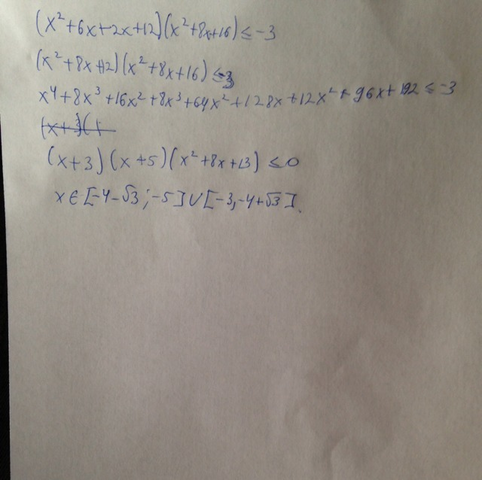 (x²+6x+2x+12)(x²+8x+16)≤-3
(x²+8x+12)(x²+8x+16)≤-3
x⁴+8x³+16x²+8x³+64x²+128x+12x²+96x+192≤-3
(x+3)(x+5)(x²+8x+13)≤0
x∈[-4-√3;-5]∪[-3,-4+√3].